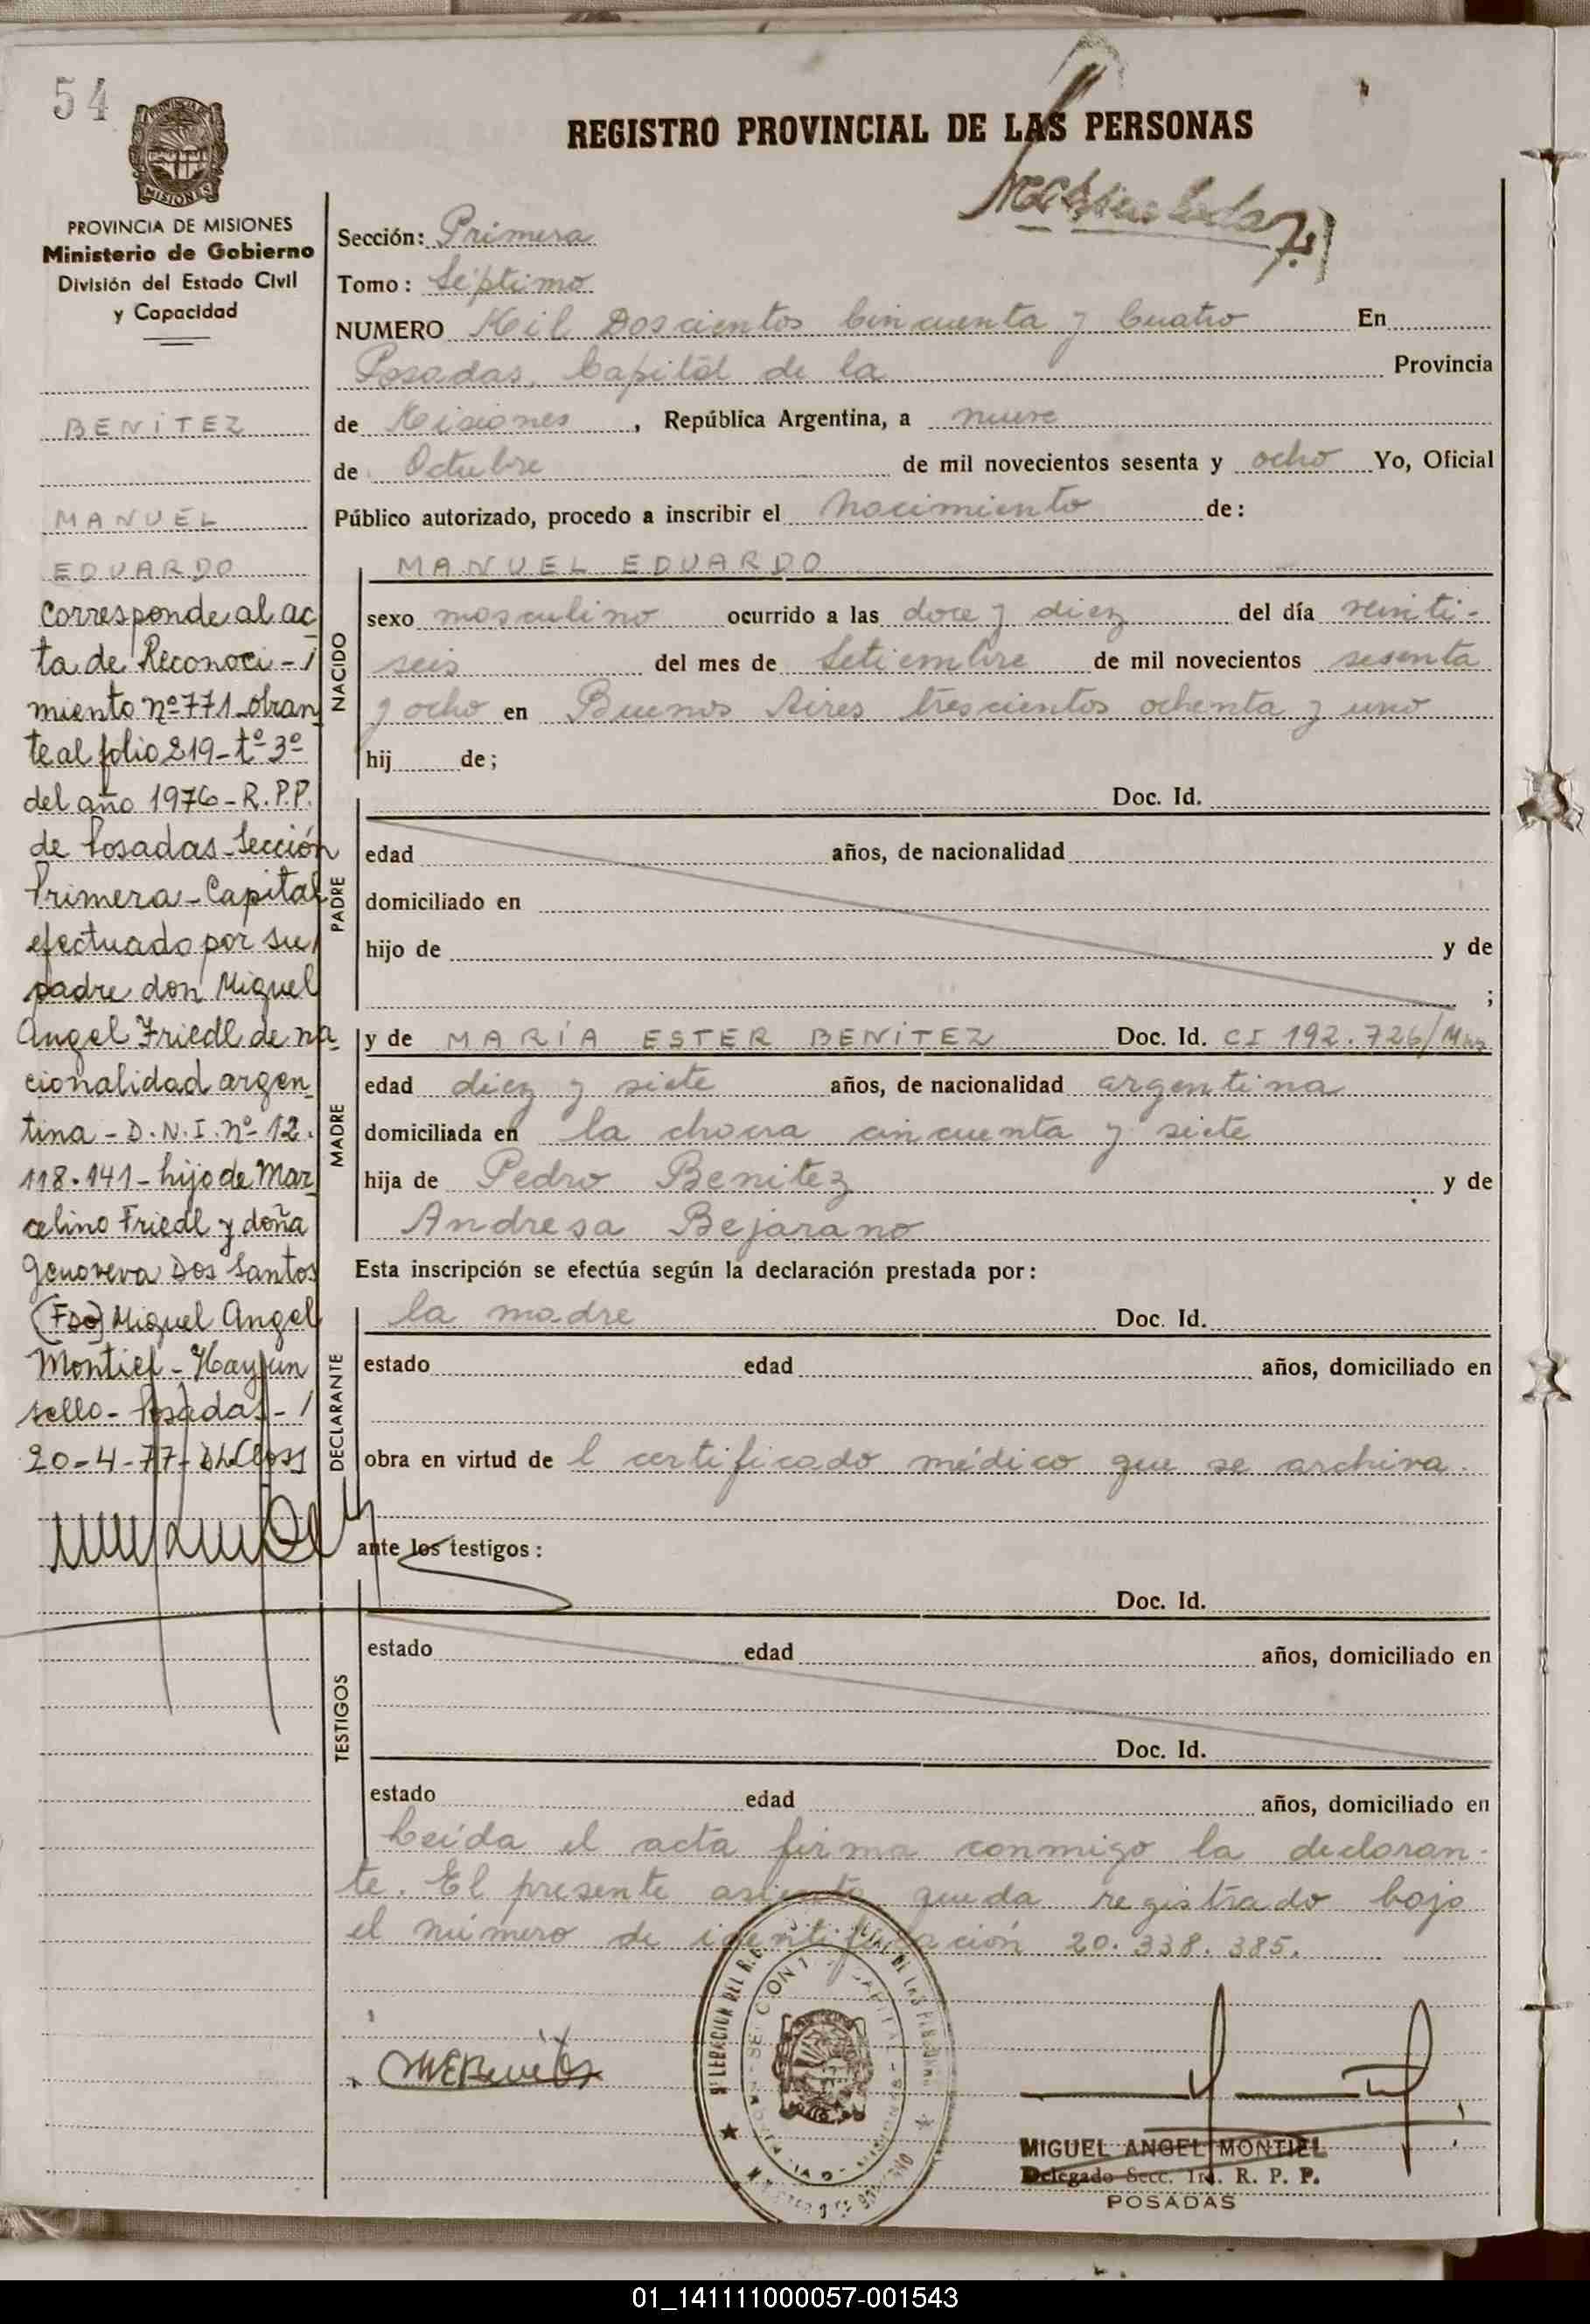 54
REGISTRO PROVINCIAL DE LAS PERSONAS
PROVINCIA DE MISIONES
Ministerio de Gobierno
División del Estado Civil
y Capacidad
BENÍTEZ
MANUEL
EDUARDO
Corresponde al ac
ta de Reconoci-/
miento nº 771-obran
te al folio 219-tº 3º
del año 1976-R.P.P.
de Posadas-Sección
Primera-Capital
efectuado por su/
padre don Miguel
Angel Friedl de na
cionalidad argen
tina-D.N.I. nº 12.
118.141-hijo de Mar
celino Friedl y doña
Genoveva Dos Santos
(Fdo) Miguel Angel
Montiel-Hay un
sello-Posadas-/
20-4-77-
Sección: Primera
Tomo: Séptimo
NUMERO Mil Doscientos Cincuenta y Cuatro En
Posadas, Capital de la Provincia
de Misiones, República Argentina, a nueve
de Octubre de mil novecientos sesenta y ocho Yo, Oficial
Público autorizado, procedo a inscribir el Nacimiento de:
NACIDO
MANUEL EDUARDO
sexo masculino ocurrido a las doce y diez del día veinti-
seis del mes de Setiembre de mil novecientos sesenta
y ocho en Buenos Aires trescientos ochenta y uno
hij de;
PADRE
Doc. Id.
edad años, de nacionalidad
domiciliado en
hijo de y de
;
MADRE
y de MARÍA ESTER BENÍTEZ Doc. Id. CI 192.726/Mns
edad diez y siete años, de nacionalidad argentina
domiciliada en la chacra cincuenta y siete
hija de Pedro Benitez y de
Andresa Bejarano
Esta inscripción se efectúa según la declaración prestada por:
DECLARANTE
la madre Doc. Id.
estado edad años, domiciliado en
obra en virtud de l certificado médico que se archiva.
ante los testigos:
TESTIGOS
Doc. Id.
estado edad años, domiciliado en
Doc. Id.
estado edad años, domiciliado en
Leída el acta firma conmigo la declaran-
te. El presente asiento queda registrado bajo
el número de identificación 20.338.385.
MEBenitez
MIGUEL ANGEL MONTIEL
Delegado Secc. 1ra. R. P. P.
POSADAS
01_141111000057-001543